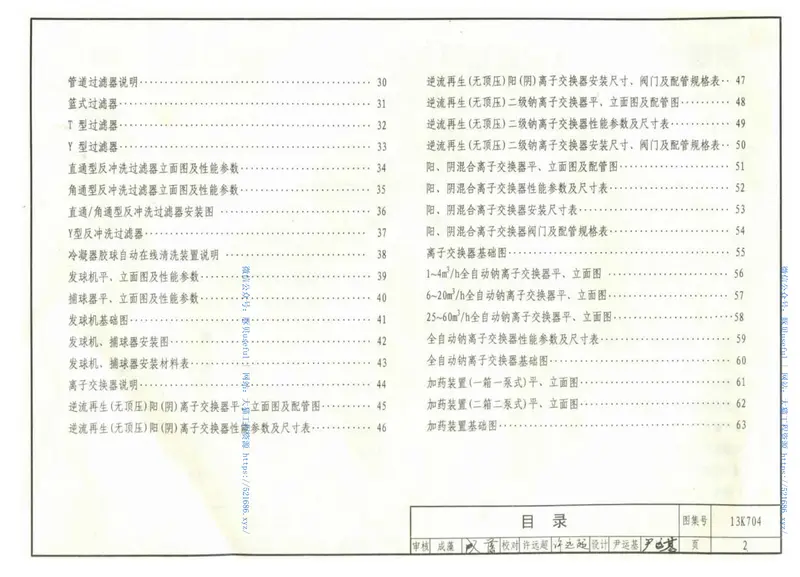 管道过滤器说明 30
篮式过滤器 31
T 型过滤器 32
Y 型过滤器 33
直通型反冲洗过滤器立面图及性能参数 34
角通型反冲洗过滤器立面图及性能参数 35
直通/角通型反冲洗过滤器安装图 36
Y型反冲洗过滤器 37
冷凝器胶球自动在线清洗装置说明 38
发球机平、立面图及性能参数 39
捕球器平、立面图及性能参数 40
发球机基础图 41
发球机、捕球器安装图 42
发球机、捕球器安装材料表 43
离子交换器说明 44
逆流再生(无顶压)阳(阴)离子交换器平、立面图及配管图 45
逆流再生(无顶压)阳(阴)离子交换器性能参数及尺寸表 46
逆流再生(无顶压)阳(阴)离子交换器安装尺寸、阀门及配管规格表 47
逆流再生(无顶压)二级钠离子交换器平、立面图及配管图 48
逆流再生(无顶压)二级钠离子交换器性能参数及尺寸表 49
逆流再生(无顶压)二级钠离子交换器安装尺寸、阀门及配管规格表 50
阳、阴混合离子交换器平、立面图及配管图 51
阳、阴混合离子交换器性能参数及尺寸表 52
阳、阴混合离子交换器安装尺寸表 53
阳、阴混合离子交换器阀门及配管规格表 54
离子交换器基础图 55
1~4m³/h全自动钠离子交换器平、立面图 56
6~20m³/h全自动钠离子交换器平、立面图 57
25~60m³/h全自动钠离子交换器平、立面图 58
全自动钠离子交换器性能参数及尺寸表 59
全自动钠离子交换器基础图 60
加药装置(一箱一泵式)平、立面图 61
加药装置(二箱二泵式)平、立面图 62
加药装置基础图 63
目 录 图集号 13K704
审核 成藻 校对 许远超 设计 尹运基 页 2